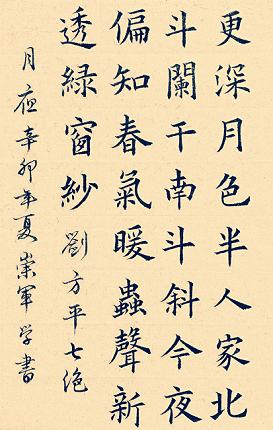 更深月色半人家北
斗闌干南斗斜今夜
偏知春氣暖蟲聲新
透綠窗紗 劉方平七绝
月夜辛卯年夏崇軍学書